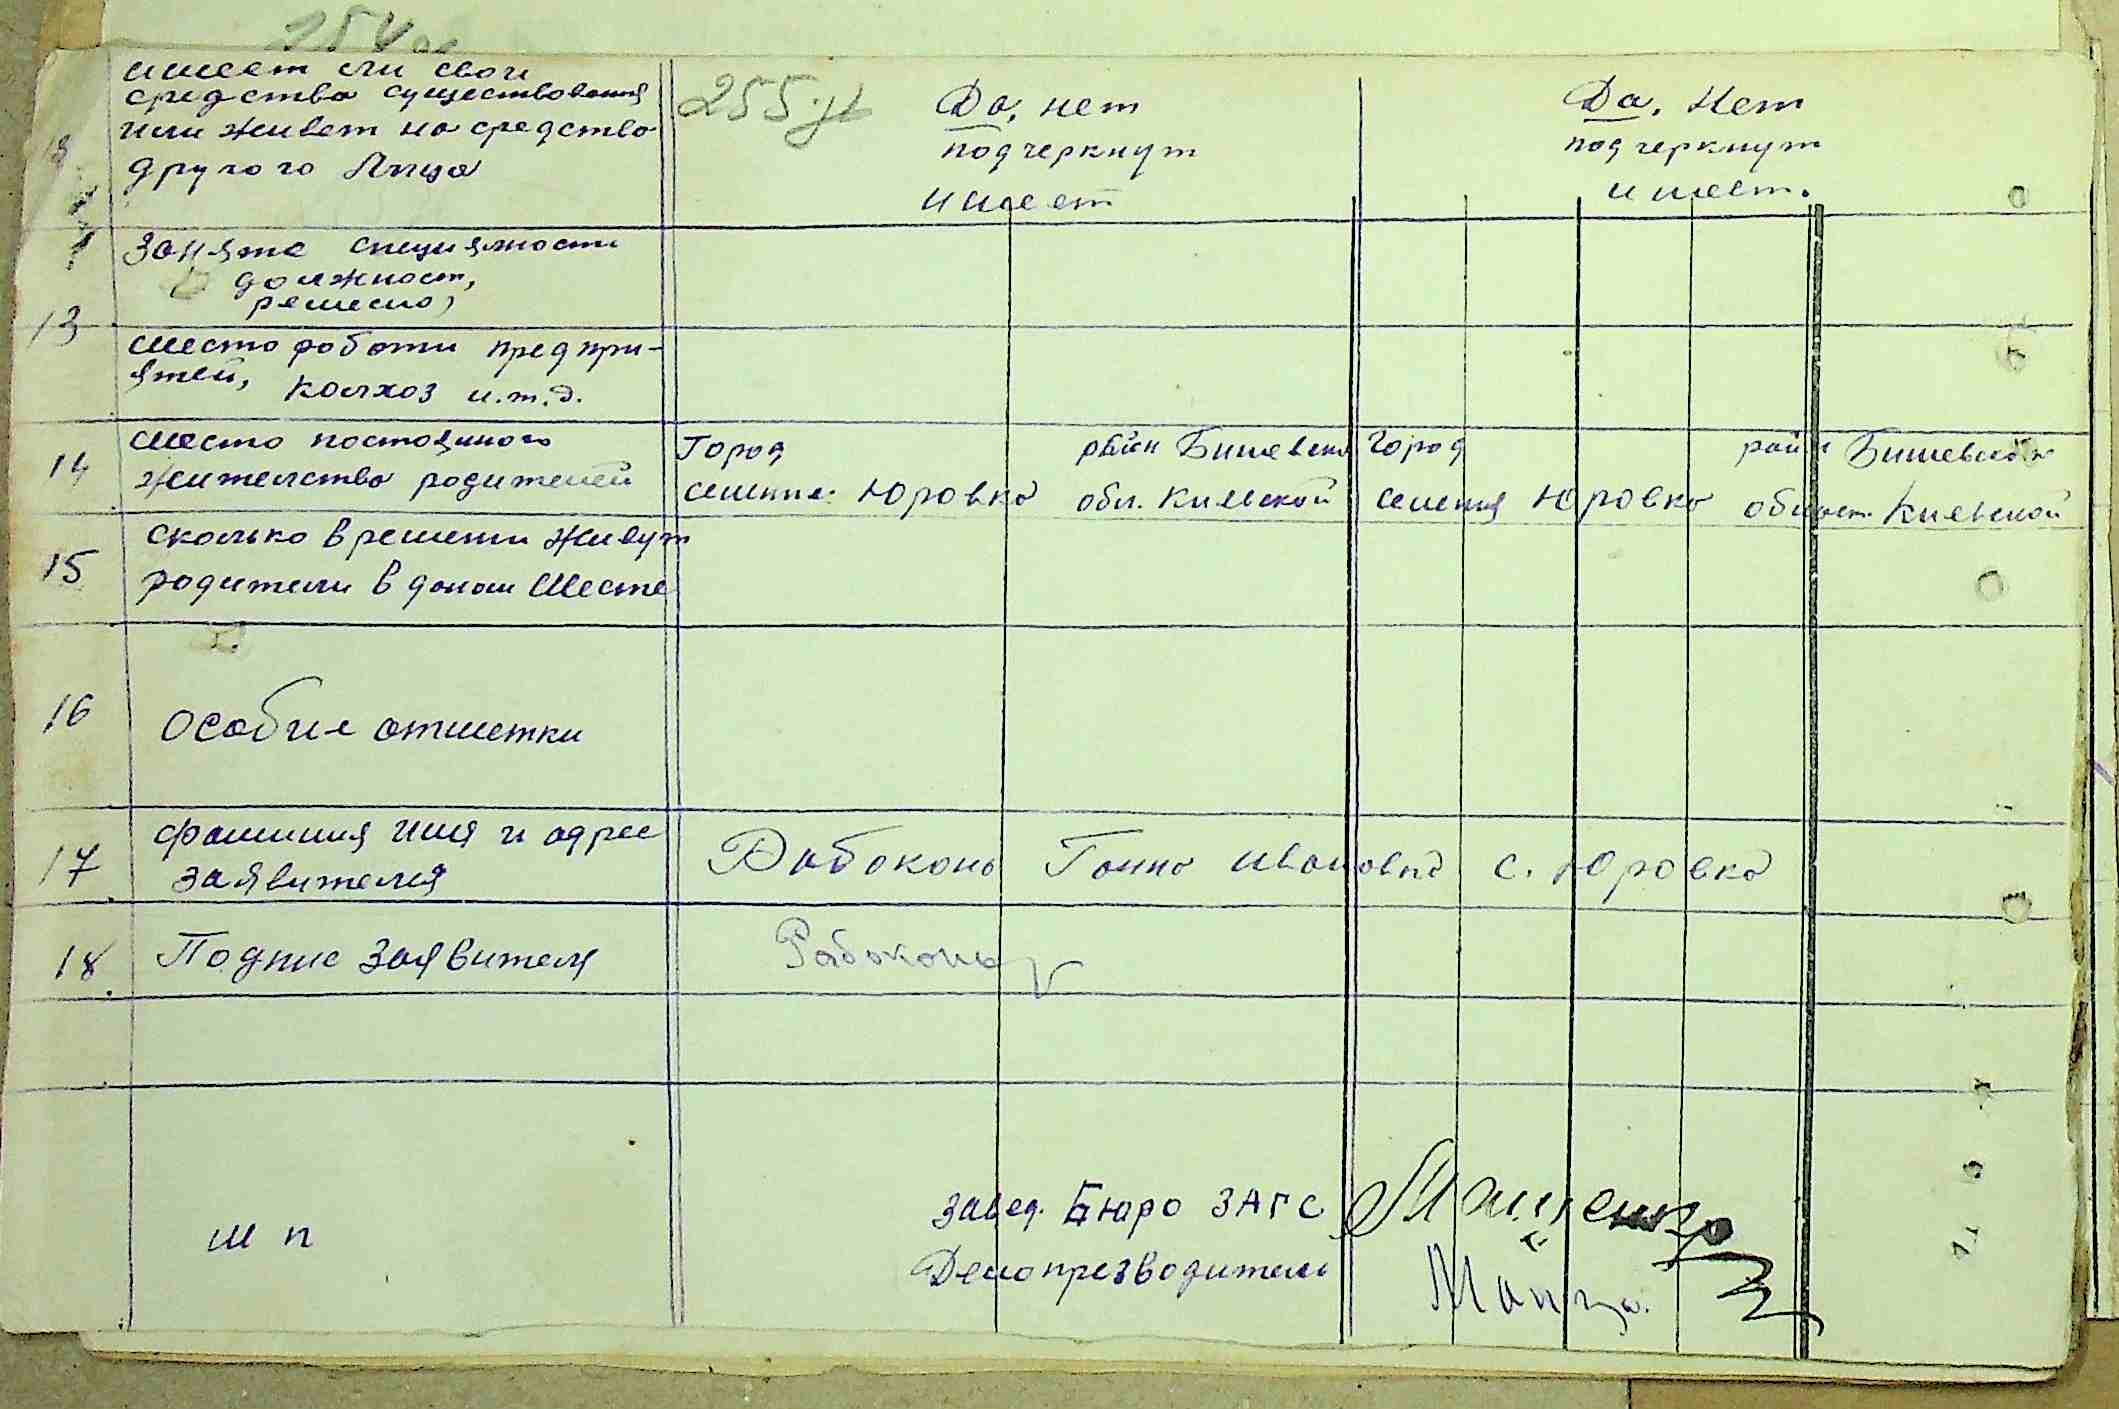 имеет ли свои
средства существования
или живет на средства
другого лица
255
Да, нет
подчеркнут
имеет
Да. Нет
подчеркнут
имеет.
Заняте специялности
должност,
ремесло,
13
место работи предпри-
ятей, колхоз и.т.д.
14
место постоянного
жителства родителей
Город
район Бишевски
Город
район Бишевской
селение Юровка
обл. Киевской
селения Юровка
област. Киевской
15
сколько времени живут
родители в даном месте
16
Особие отметки
17
фамилия имя и адрес
заявителея
Рабоконь Ганна Ивановна с. Юровка
18
Подпис заявителя
Рабоконь
м п
завед. Бюро ЗАГС
Делопрезводитель